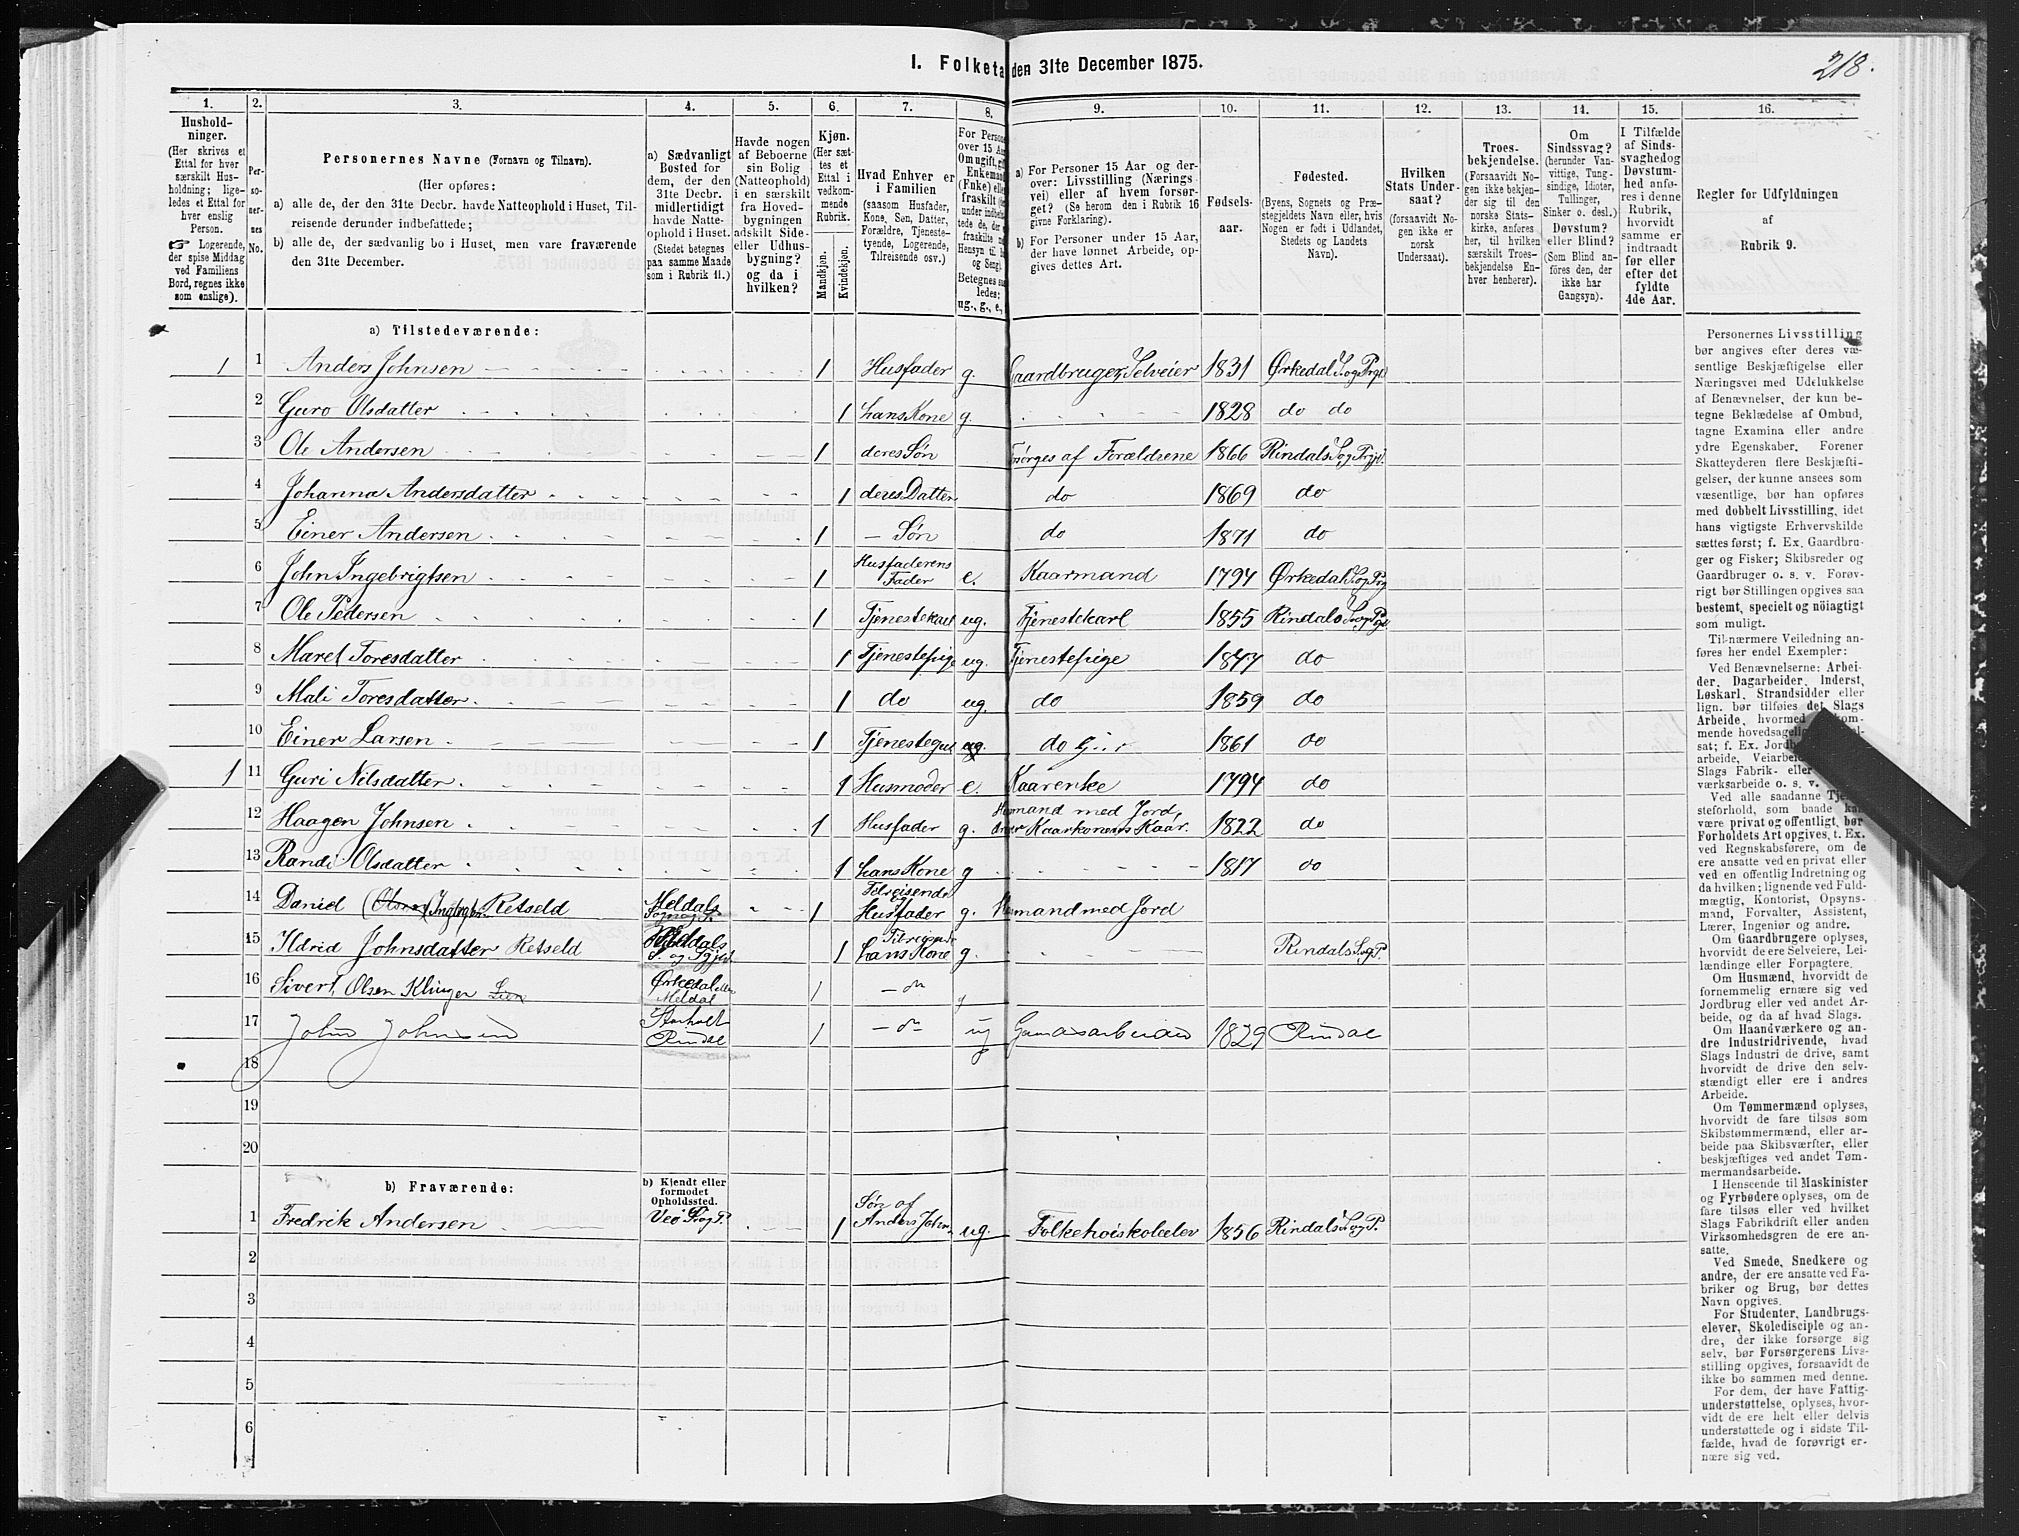 I. Folketa den 31te December 1875.
218.
1. 2. 3. 4. 5. 6. 7. 8. 9. 10. 11. 12. 13. 14. 15. 16.
Hushold-
ninger.
(Her skrives et
Ettal for hver
særskilt Hus-
holdning; lige-
ledes et Ettal for
hver enslig
Person.
☞ Logerende,
der spise Middag
ved Familiens
Bord, regnes ikke
som enslige).
Per-
so-
ner-
nes
No.
Personernes Navne (Fornavn og Tilnavn).
(Her opføres:
a) alle de, der den 31te Decbr. havde Natteophold i Huset, Til-
reisende derunder indbefattede;
b) alle de, der sædvanlig bo i Huset, men vare fraværende
den 31te December.
a) Sædvanligt
Bosted for
dem, der den
31te Decbr.
midlertidigt
havde Natte-
ophold i Huset.
(Stedet betegnes
paa samme Maade
som i Rubrik 11.)
Havde nogen
af Beboerne
sin Bolig
(Natteophold)
i en særskilt
fra Hoved-
bygningen
adskilt Side-
eller Udhus-
bygning?
og da i
hvilken?
Kjøn.
(Her sæt-
tes et
Ettal i
vedkom-
mende
Rubrik.
Mandkjøn.
Kvindekjøn.
Hvad Enhver er
i Familien
(saasom Husfader,
Kone, Søn, Datter,
Forældre, Tjeneste-
tyende, Logerende,
Tilreisende osv.)
For Persone
over 15 Aar
Om ugift, gif
Enkemand
(Enke) eller
fraskilt
Betegnes saa
ledes:
ug., g., e.,
a) For Personer 15 Aar og der-
over: Livsstilling (Nærings-
vei) eller af hvem forsør-
get? (Se herom den i Rubrik 16
givne Forklaring).
b) For Personer under 15 Aar,
der have lønnet Arbeide, op-
gives dettes Art.
Fødsels-
aar.
Fødested.
(Byens, Sognets og Præ-
stegjeldets Navn eller, hvis
Nogen er født i Udlandet,
Stedets og Landets
Navn).
Hvilken
Stats Under-
saat?
(forsaavidt No-
gen ikke er
norsk
Undersaat).
Troes-
bekjendelse.
(Forsaavidt No-
gen ikke bekjen-
der sig til den
norske Stats-
kirke, anføres
her, til hvilken
særskilt Troes-
bekjendelse En-
hver henhører).
Om
Sindssvag?
(herunder Van-
vittige, Tung-
sindige, Idioter,
Tullinger,
Sinker o. desl.)
Døvstum?
eller Blind?
(Som Blind an-
føres den, der
ikke har
Gangsyn).
I Tilfælde
af Sinds-
svaghed og
Døvstum-
hed anfø-
res i denne
Rubrik,
hvorvidt
samme er
indtraadt
før eller
efter det
fyldte
4de Aar.
Regler for Udfyldningen
af
Rubrik 9.
a) Tilstedeværende:
1 1 Anders Johnsen 1 Husfader g. Gaardbruger, Selveier 1831 Ørkedal S. og Prgl
2 Guro Olsdatter 1 hans Kone g. 1828 do do
3 Ole Andersen 1 deres Søn Forsørges af Forældrene 1866 Rindals Sog Prgjl.
4 Johanna Andersdatter 1 deres Datter do 1869 do
5 Einer Andersen 1 – Søn do 1871 do
6 John Ingebrigtsen 1 Husfaderens Fader e. Kaarmand 1794 Ørkedal S. og Prg
7 Ole Pedersen 1 Tjenestekarl ug. Tjenestekarl 1855 Rindals S. og Pgl
8 Maret Toresdatter 1 Tjenestepige ug. Tjenestepige 1847 do
9 Mali Toresdatter 1 do ug. do 1859 do
10 Einer Larsen 1 Tjenestegut ug. do 1861 do
1 11 Guri Nilsdatter 1 Husmoder e. Kaarenke 1794 do
12 Haagen Johnsen 1 Husfader g. Husmand med Jord, Kaarkonens Kaar. 1822 do
13 Randi Olsdatter 1 hans Kone g 1817 do
14 Daniel Retseld Meldals Sogn og P. 1 Tilreisende Husfader g. Husmand med Jord
15 Ildrid Johnsdatter Retseld Meldals S. og Pgjld. 1 Tilreisende hans Kone g. Rindals S og P.
16 Sivert Olsen Klinger Ørkedal eller Meldal 1 – do g
17 John Johnsen Rindal 1 – do ug 1829 Rindal
18
19
20
b) Fraværende:
b) Kjendt eller
formodet
Opholdssted.
1 Fredrik Andersen Veø S og P. 1 Søn af Anders John ug. Folkehøiskoleelev 1856 Rindals S. og P.
2
3
4
5
6
Personernes Livsstilling
bør angives efter deres væ-
sentlige Beskjæftigelse eller
Næringsvei med Udelukkelse
af Benævnelser, der kun be-
tegne Beklædelse af Ombud,
tagne Examina eller andre
ydre Egenskaber. Forener
Skatteyderen flere Beskjæfti-
gelser, der kunne ansees som
væsentlige, bør han opføres
med dobbelt Livsstilling, idet
hans vigtigste Erhvervskilde
sættes først; f. Ex. Gaardbru-
ger og Fisker; Skibsreder og
Gaardbruger o. s. v. Forøv-
rigt bør Stillingen opgives saa
bestemt, specielt og nöiagtigt
som muligt.
Til nærmere Veiledning an-
føres her endel Exempler:
Ved Benævnelserne: Arbei-
der, Dagarbeider, Inderst,
Løskarl, Strandsidder eller
lign. bør tilføies det Slags
Arbeide, hvormed
mende hovedsagel
sat; f. Ex. Jordb
arbeide, Veiarbei
Slags Fabrik- eller
værksarbeide o. s. v.
Ved alle saadanne Tje
steforhold, som baade
være privat og offentligt, bør
Forholdets Art opgives, f. Ex.
ved Regnskabsførere, om de
ere ansatte ved en privat eller
ved en offentlig Indretning og
da hvilken; lignende ved Fuld-
mægtig, Kontorist, Opsyns-
mand, Forvalter, Assistent,
Lærer, Ingeniør og andre.
Om Gaardbrugere oplyses,
hvorvidt de ere Selveiere, Lei-
lændinge eller Forpagtere.
Om Husmænd, hvorvidt de
fornemmelig ernære sig ved
Jordbrug eller ved andet Ar-
beide, og da af hvad Slags.
Om Haandværkere og an-
dre Industridrivende, hvad
Slags Industri de drive, samt
hvorvidt de drive den selv-
stændigt eller ere i andres
Arbeide.
Om Tømmermænd oplyses,
hvorvidt de fare tilsøs som
Skibstømmermænd, eller ar-
beide paa Skibsværfter, eller
beskjæftiges ved andet Tøm-
mermandsarbeide.
I Henseende til Maskinister
og Fyrbødere oplyses, om de
fare tilsøs eller ved hvilket
Slags Fabrikdrift eller anden
Virksomhedsgren de ere an-
satte.
Ved Smede, Snedkere og
andre, der ere ansatte ved Fa-
briker og Brug, bør dettes
Navn opgives.
For Studenter, Landbrugs-
elever, Skoledisciple og an-
dre, der ikke forsørge sig
selv, bør Forsørgerens Livs-
stilling opgives, forsaavidt de
ikke bo sammen med denne.
For dem, der have Fattig-
understøttelse, oplyses, hvor-
vidt de ere helt eller delvis
understøttede og i sidste Til-
fælde, hvad de forøvrigt er-
nære sig ved.